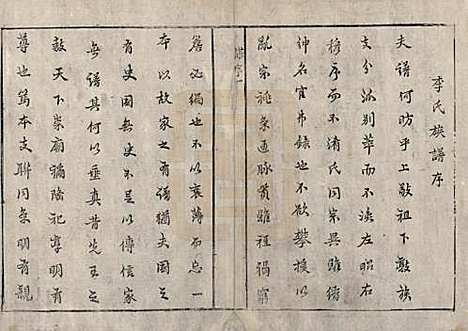 李氏族譜序
夫譜何昉乎上敬祖下敦族
支分派別萃而不渙左昭右
穆序而不淆氏同宗異雖縉
紳名宦弗錄也不欲攀援以
亂宗祧条連脉貫雖種禍窮
詹必綱也不以衰薄而忘一
本以故家之有譜猶夫國之
有史國無史不足以傳信家
無譜其何以垂真昔先王之
教天下崇廟禰隆祀享明有
尊也篤本支聯同条明有親
譜序一